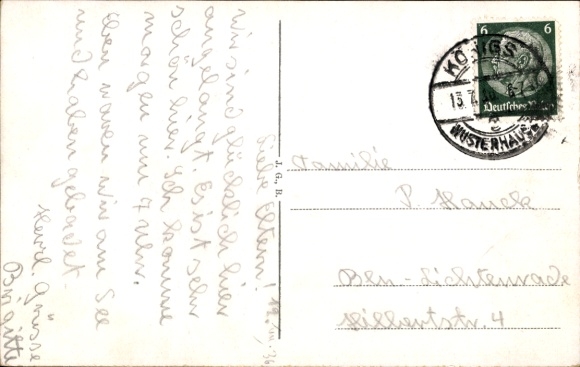 Liebe Eltern! 12. VII. 36.
wir sind glücklich hier
angelangt. Es ist sehr
schön hier. Ich komme
morgen um 7 Uhr.
Eben waren wir am See
und haben gebadet.
Herzl. Grüsse
Birgitte
J. G., B.
6 6
Deutsches Reich
KÖNIGS
WUSTERHAUSEN
Familie
P. Hauck
Bln-Lichtenrade
Hilbertstr. 4